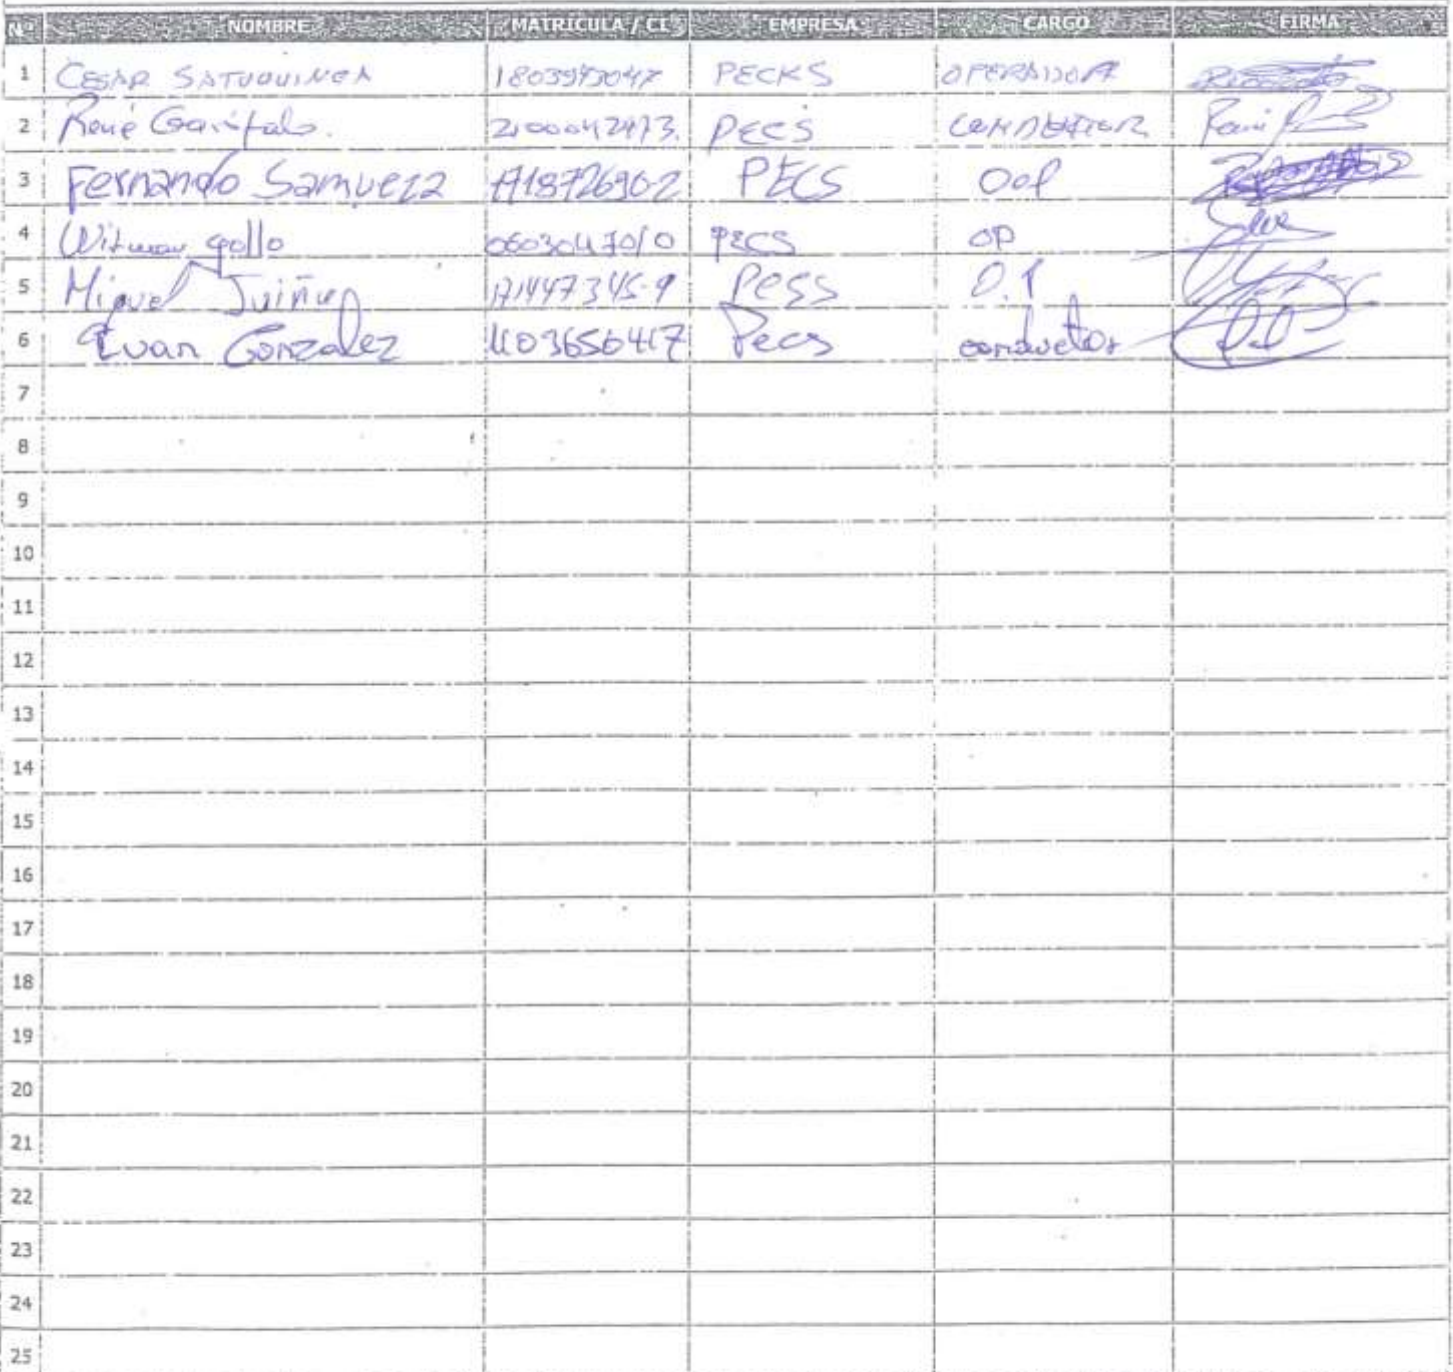 Nº NOMBRE MATRÍCULA / CI EMPRESA CARGO FIRMA
1 CESAR SATUQUINGA PECKS OPERADOR
2 René Garófalo. 2100042473. PECS CONDUCTOR
3 Fernando Samueza 1718726902 PECS
4 Wilmar gallo 0603047010 PECS OP
5 Miguel 171447345-9 PESS
6 Ivan Gonzalez 1103656417 Pecs conductor
7
8
9
10
11
12
13
14
15
16
17
18
19
20
21
22
23
24
25